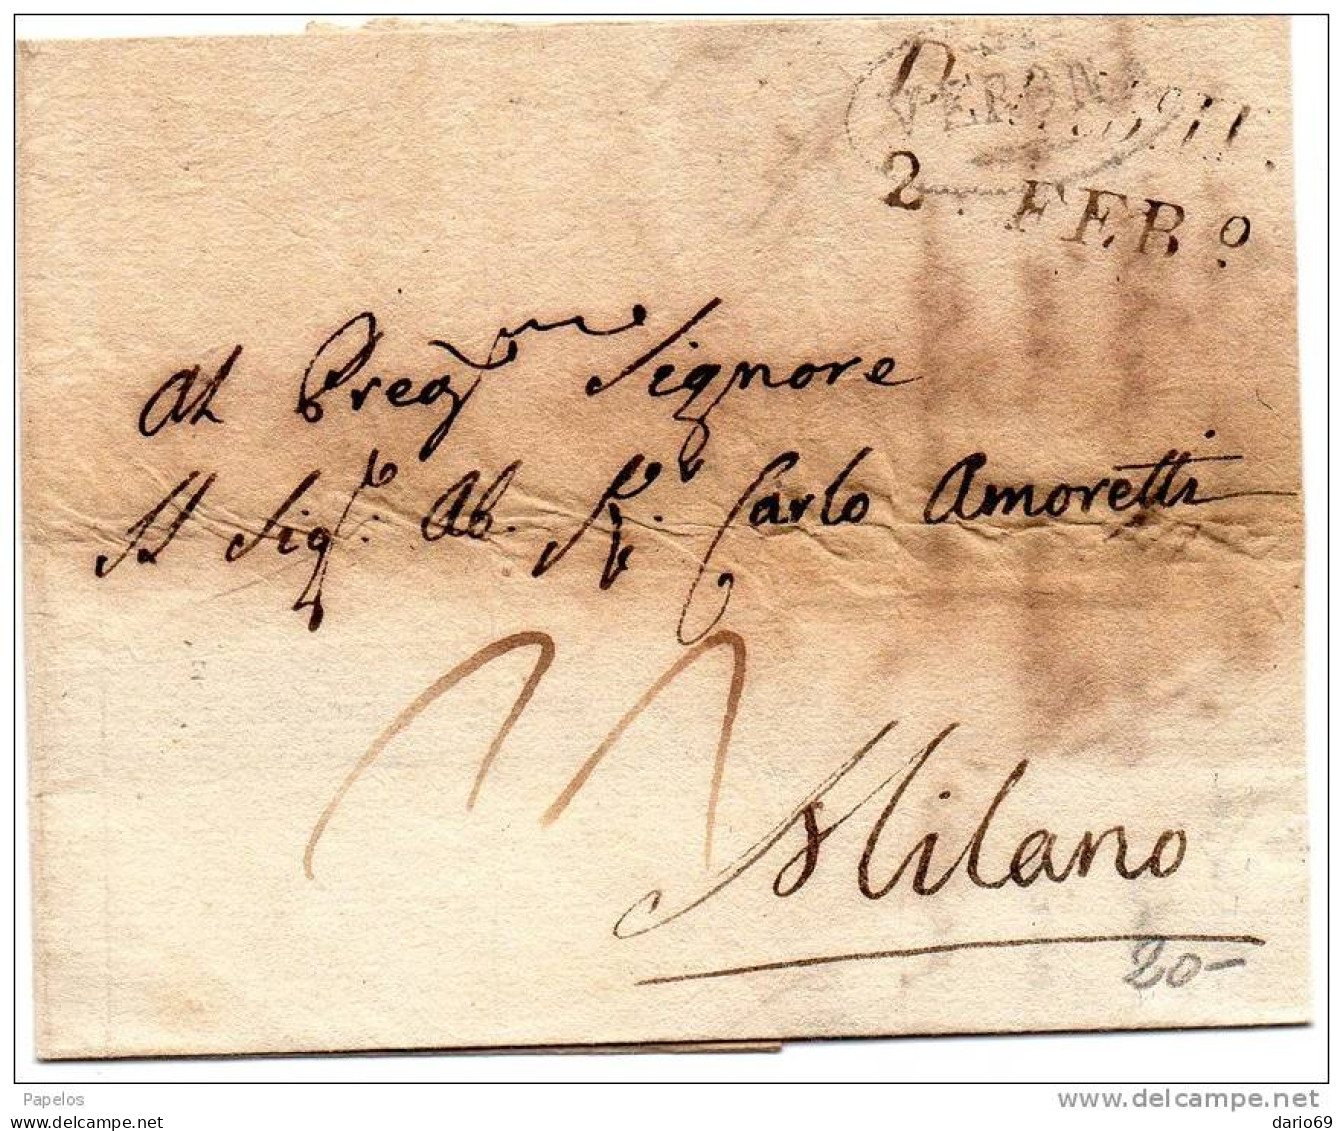 VERONA
2 FEB.º
Al Preg.mo Signore
Il Sig.r Ab. Carlo Amoretti
Milano
20-
Papelos
www.delcampe.net
dario69